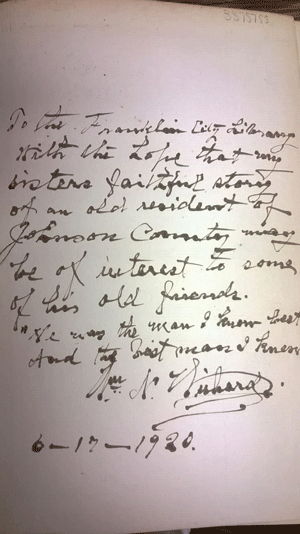 3315753
To the Franklin City Library
With the hope that my
sisters faithful story
of an old resident of
Johnson County may
be of interest to some
of his old friends.
"He was the man I knew best
And the best man I knew
Wm. N.
6-17-1920.